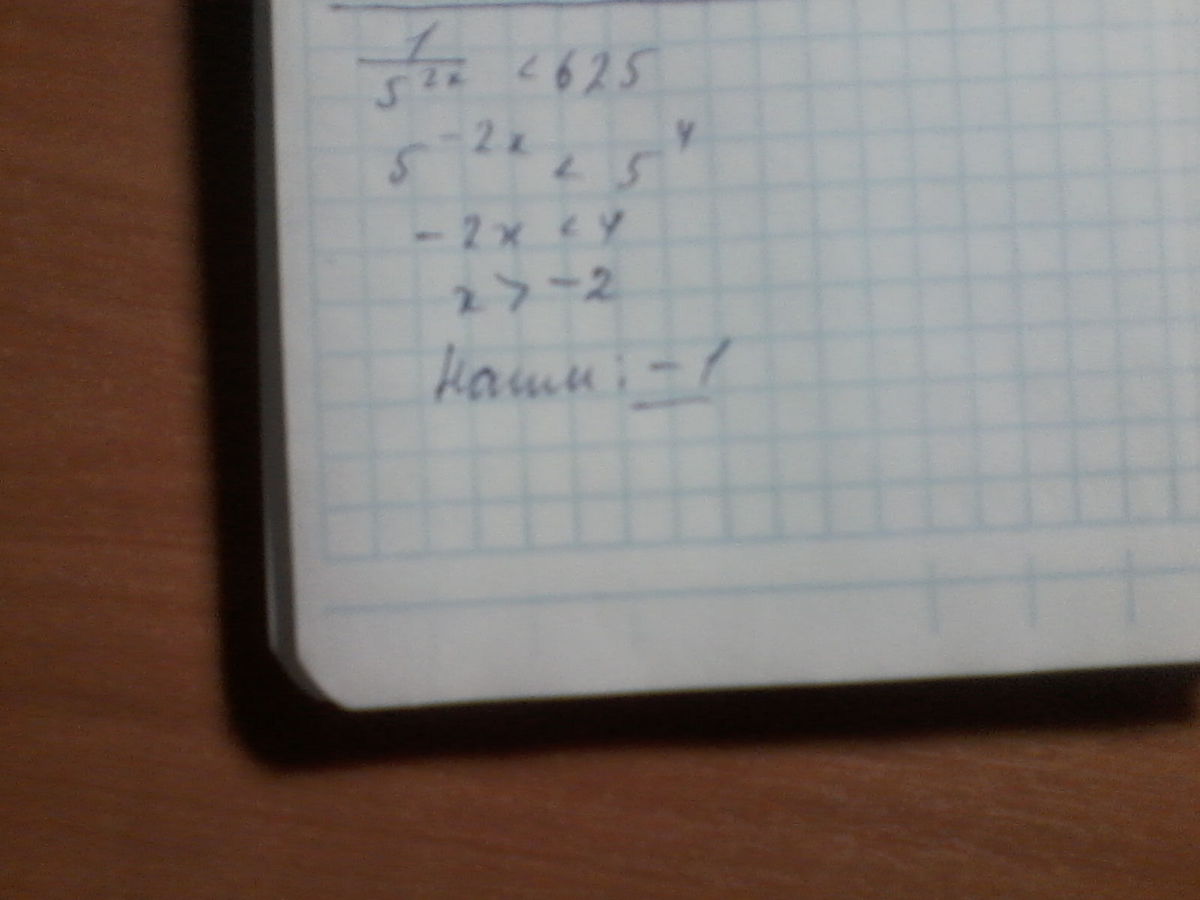 1/5^2x < 625
5^-2x < 5^4
-2x < 4
x > -2
Наим: -1